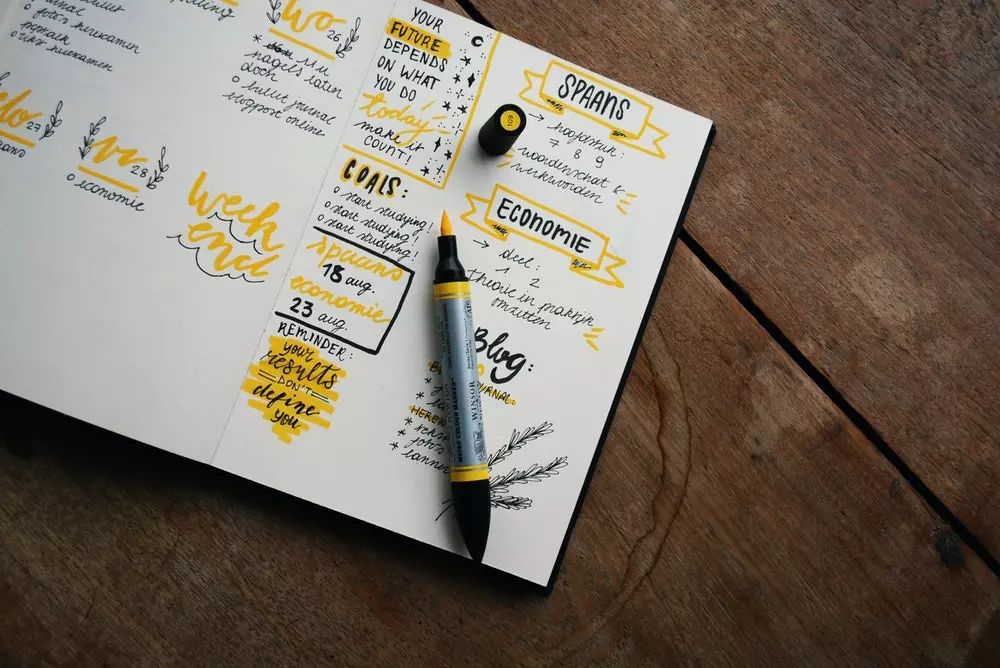 o foto's herexamen
o tekst herexamen
wo 26
* 11u
nagels laten
doen
o bullet journal
blogpost online
do 27
vr 28
o economie
week
end
YOUR
FUTURE
DEPENDS
ON WHAT
YOU DO
today
make it
COUNT!
GOALS:
o start studying!
o start studying!
o start studying!
spaans
18 aug.
economie
23 aug.
REMINDER:
your
results
DON'T
define
you
SPAANS
→ hoofdstuk:
7 8 9
woordenschat &
werkwoorden
ECONOMIE
→ deel:
1 2
theorie in praktijk
omzetten
Blog:
109
WATER COLOUR MARKER
WINSOR